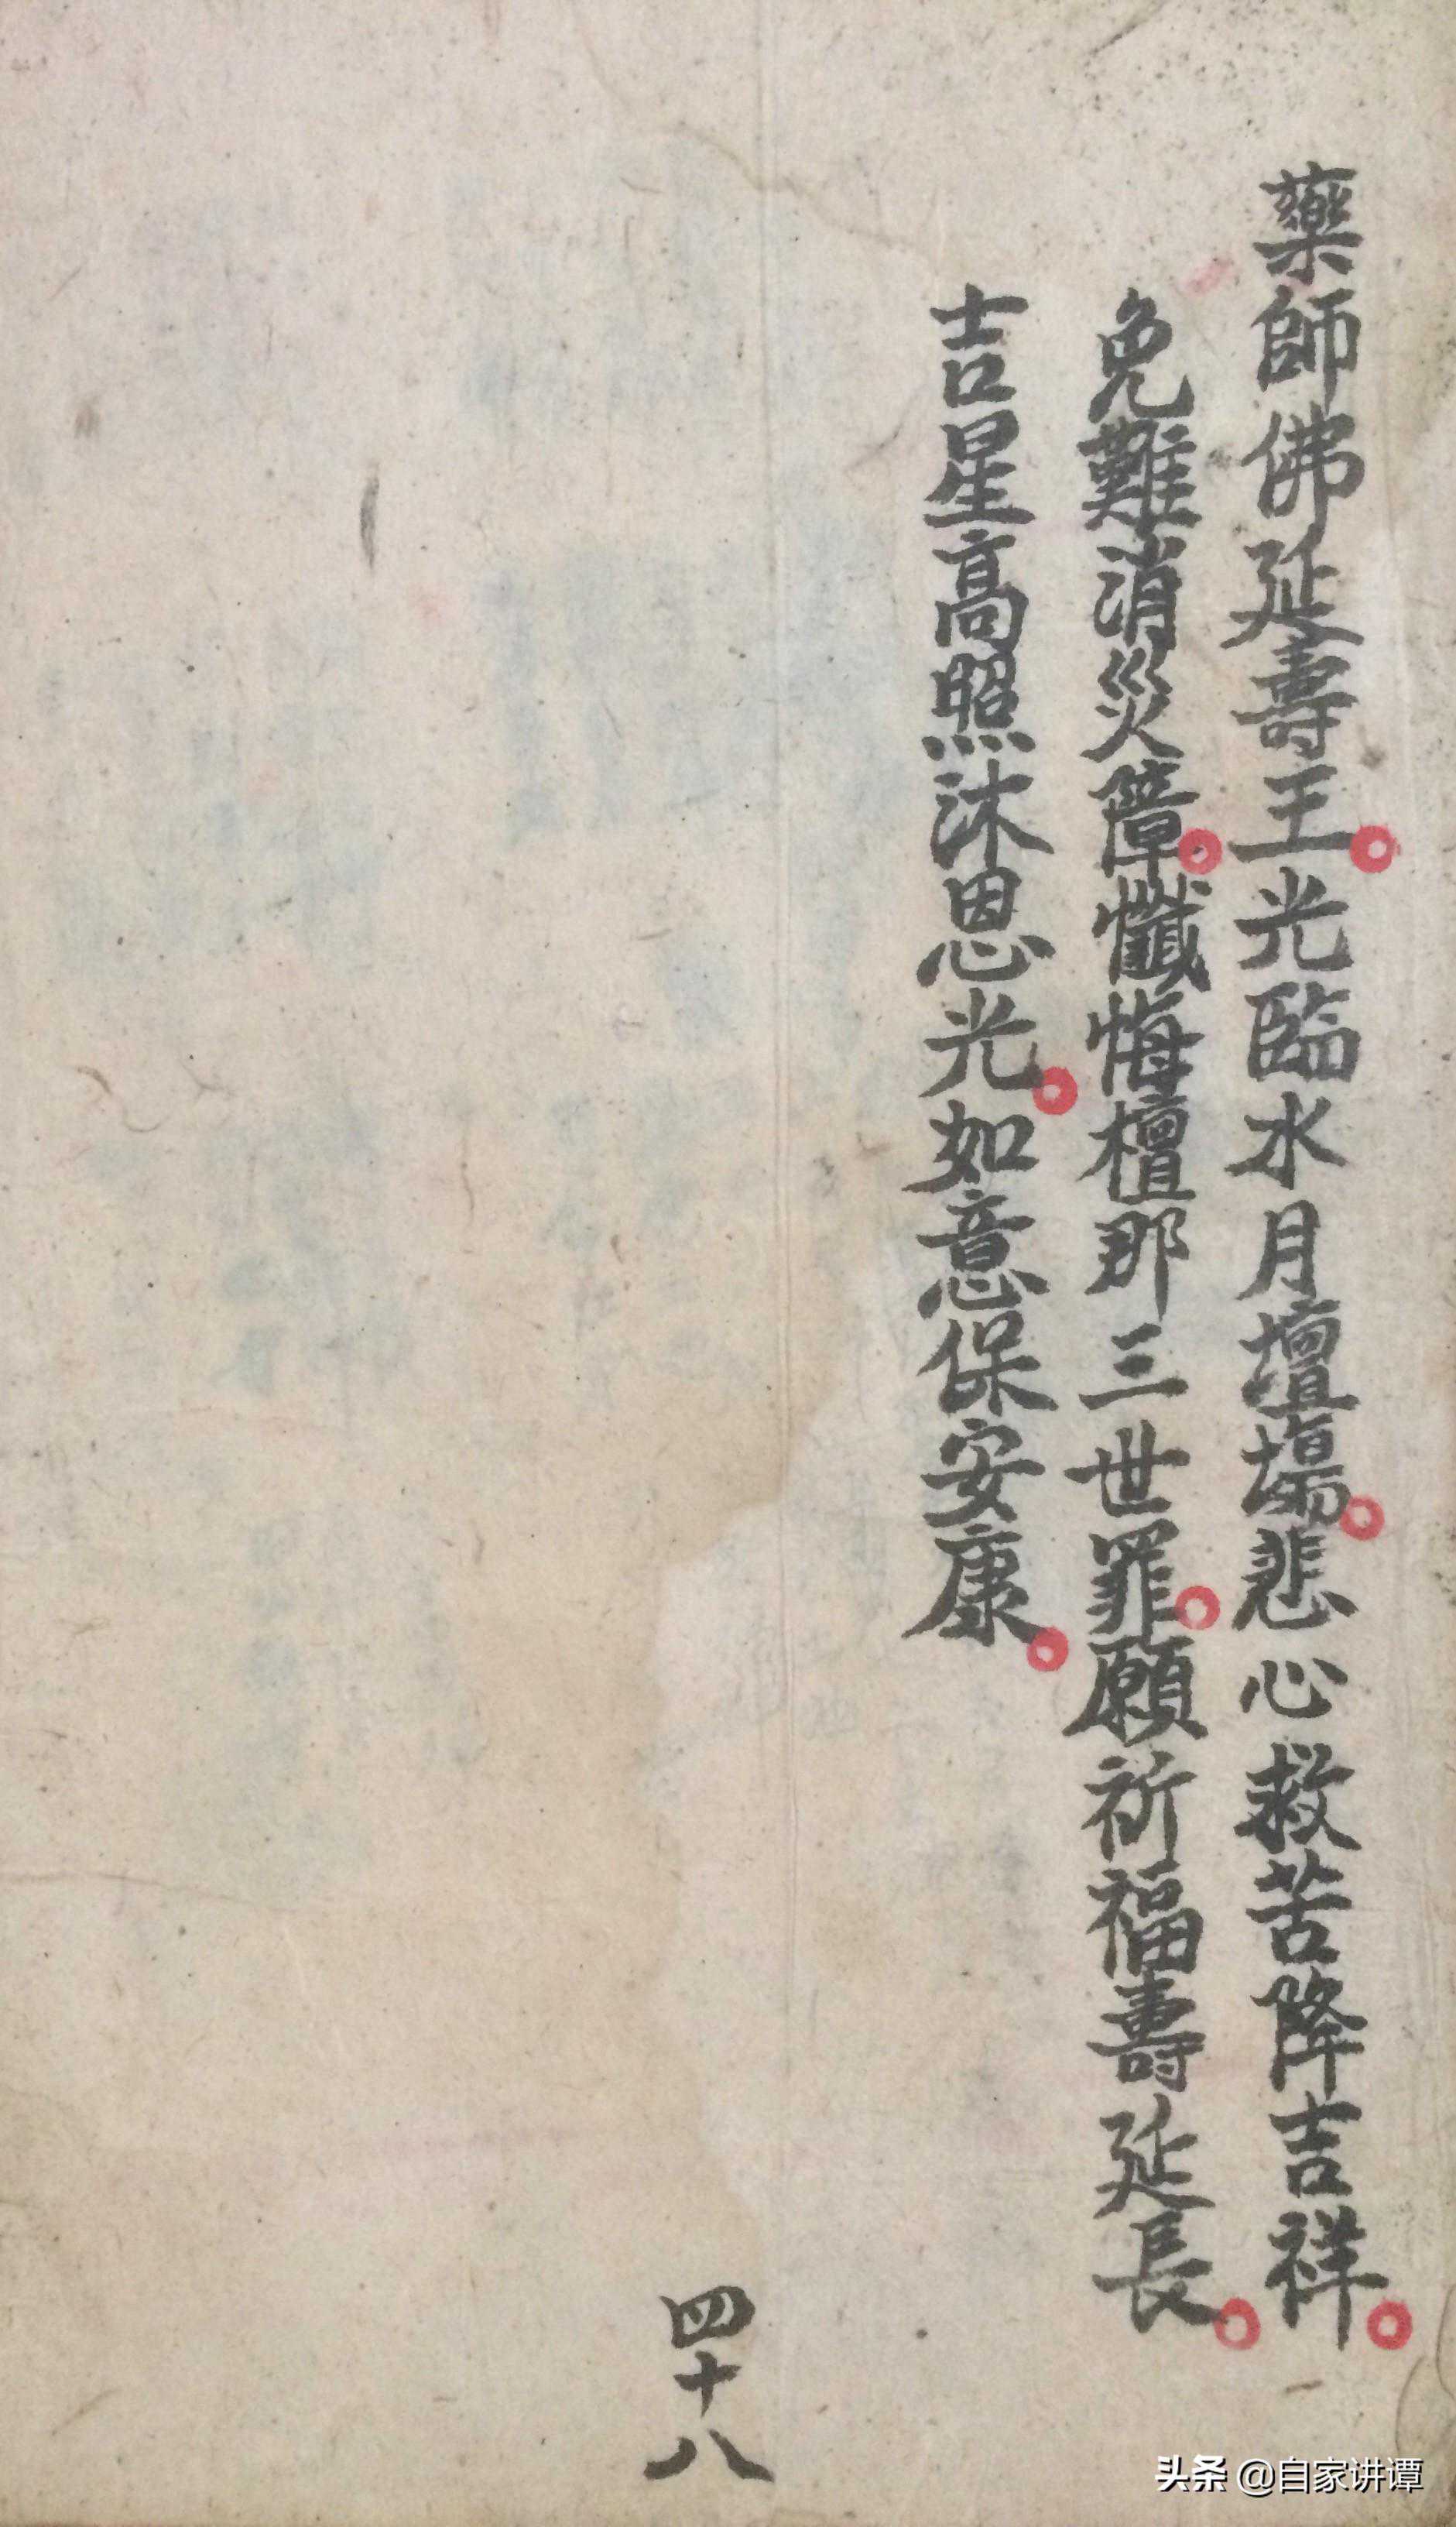 藥師佛延壽王。光臨水月壇場。悲心救苦降吉祥。
免難消災障。懺悔檀那三世罪。願祈福壽延長。
吉星高照沐恩光。如意保安康。
四十八
头条 @自家讲谭